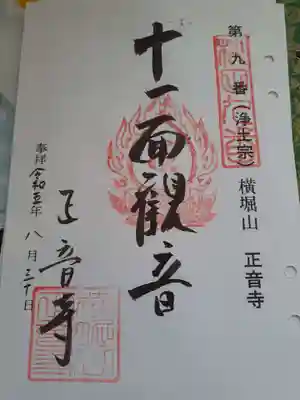 第九番(浄土宗) 横堀山 正音寺
十一面観音
奉拝 令和五年 八月三十日
正音寺